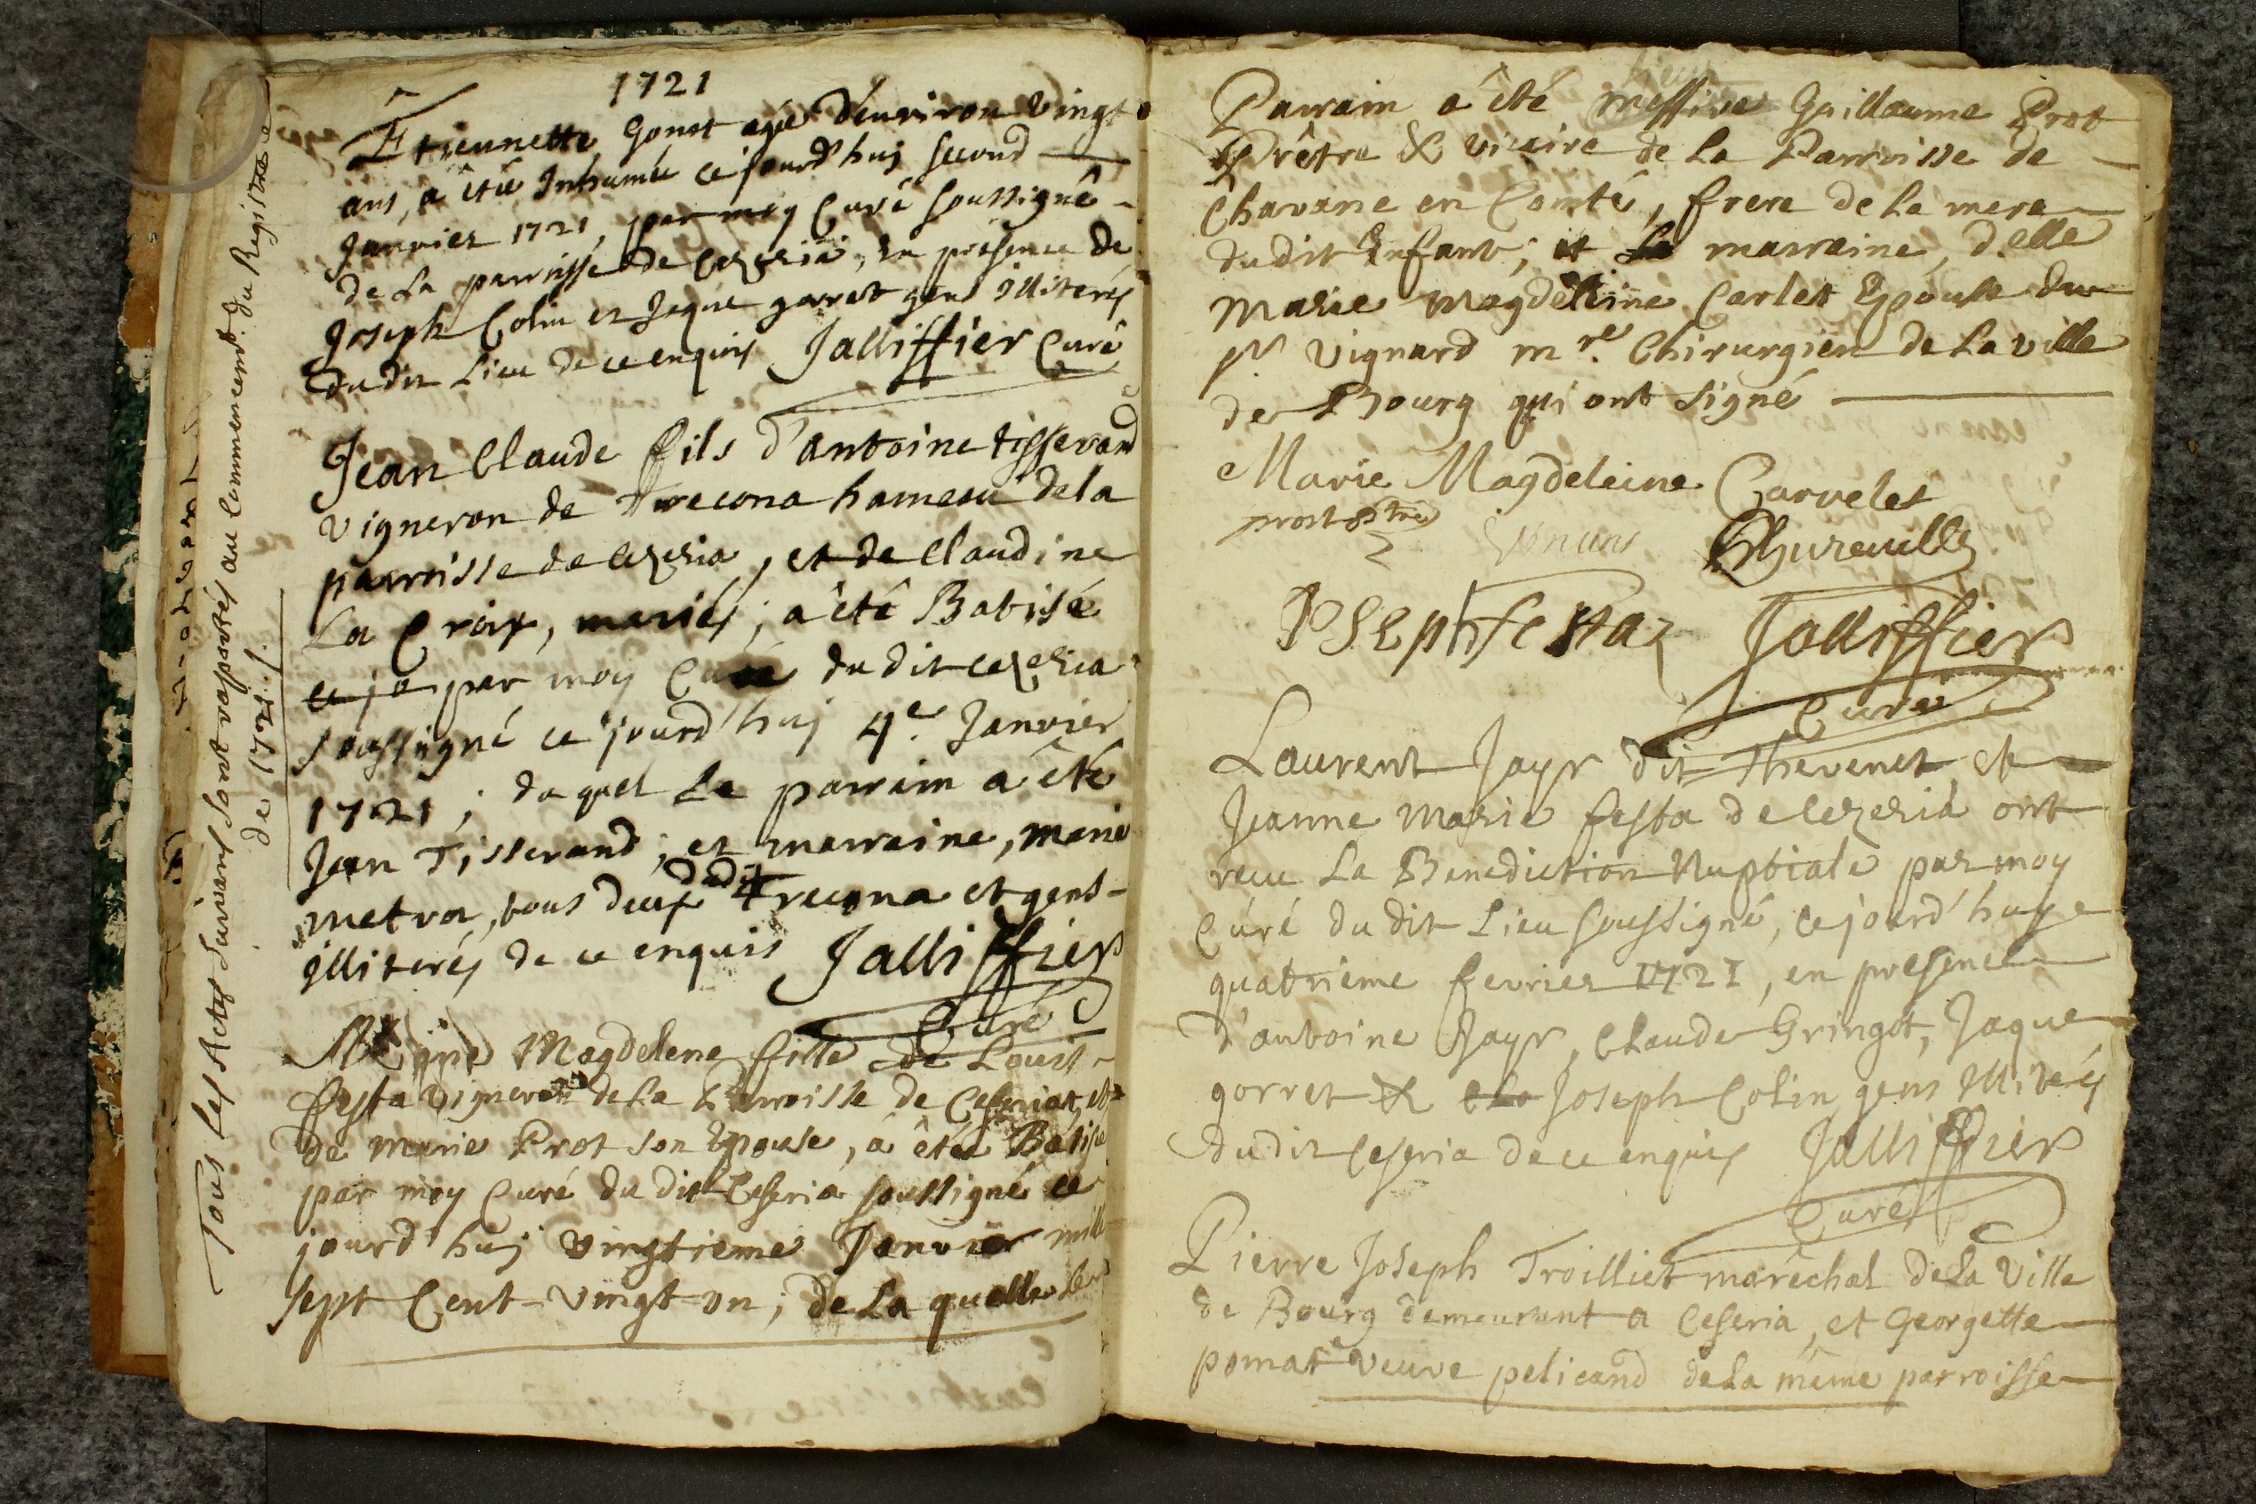 Tous les Actes Suivans sont rapportés au Commencemt. du Registre
de 1721./.
1721
Etiennette Gonet agée d'environ vingt
ans, a êtée Inhumée ce jourd'huy second
Janvier 1721, par moy Curé soussigné
de la parroisse de Cezeria, en présence de
Joseph Colin et Jaque gorret gens illiterés
du dit Lieu de ce enquis Jalliffier Curé
Jean Claude fils d'antoine tisserand
vigneron de Trecona hameau de la
parroisse de Cezeria, et de Claudine
La Croix, mariés; a êté Batisé
ce jo par moy Curé du dit cezeria
soussigné ce jourd'huy 4e. Janvier
1721; du quel le parrain a êté
Jean Tisserand; et marraine, marie
metra, tous deux dudit Trecona et gens
illiterés de ce enquis Jalliffier
Curé
Magdelene fille de Louis
festa vigneron de la Parroisse de Ceseriat, et
de marie Prot son Epouse, a êtée Batisée
par moy Curé du dit Ceseria soussigné ce
jourd'huy vingtieme Janvier mille
sept Cent-vingt-un; de la quelle le
Parrain a êté messire Guillaume Prot
Prêtre & vicaire de la Parroisse de
Chavane en Comté, frere de la mere
dudit Enfant; et la marraine, d.elle
Marie Magdeleine Carlet Epouse du
sr. Vignard mre. Chirurgien de la ville
de Bourg qui ont signé
Marie Magdeleine Carvelet
prost ptre Thureville
Joseph festaz Jalliffier
Curé
Laurent Jayr dit Thevenet et
Jeanne Marie festa de Cezeria ont
receu La Benediction Nuptiale par moy
Curé du dit Lieu soussigné, ce jourd'huy
quatrieme fevrier 1721, en presence
d'antoine Jayr, Claude Gringot, Jaque
gorret & Clo Joseph Colin gens Illiterés
du dit Ceseria de ce enquis Jalliffier
Curé
Pierre Joseph Troilliet maréchal de la Ville
de Bourg demeurant a Ceseria, et Georgette
pomat veuve pelicand de la même parroisse